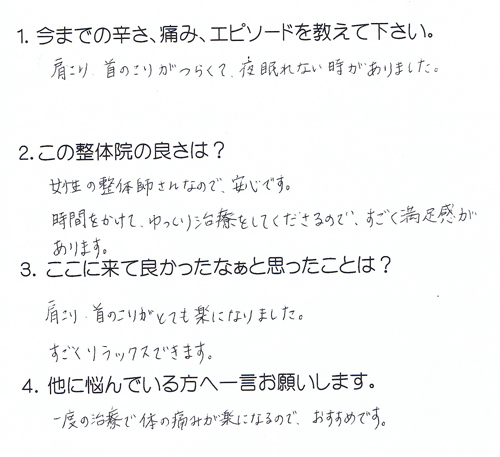 1. 今までの辛さ、痛み、エピソードを教えて下さい。
肩こり、首のこりがつらくて、夜眠れない時がありました。
2.この整体院の良さは？
女性の整体師さんなので、安心です。
時間をかけて、ゆっくり治療をしてくださるので、すごく満足感が
あります。
3. ここに来て良かったなぁと思ったことは？
肩こり、首のこりがとても楽になりました。
すごくリラックスできます。
4. 他に悩んでいる方へ一言お願いします。
一度の治療で体の痛みが楽になるので、おすすめです。